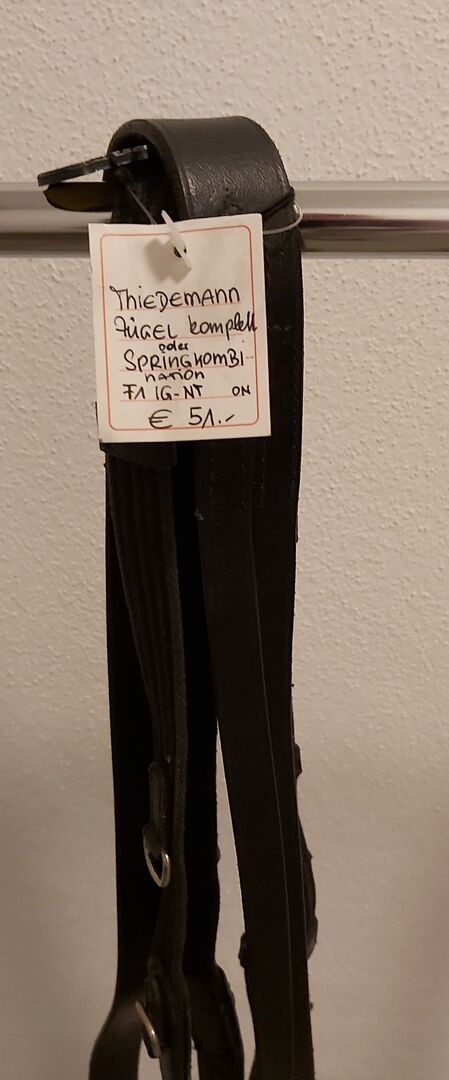 THIEDEMANN
ZÜGEL komplett
oder
SPRINGKOMBI-
NATION
IG-NT ON
€ 51.-